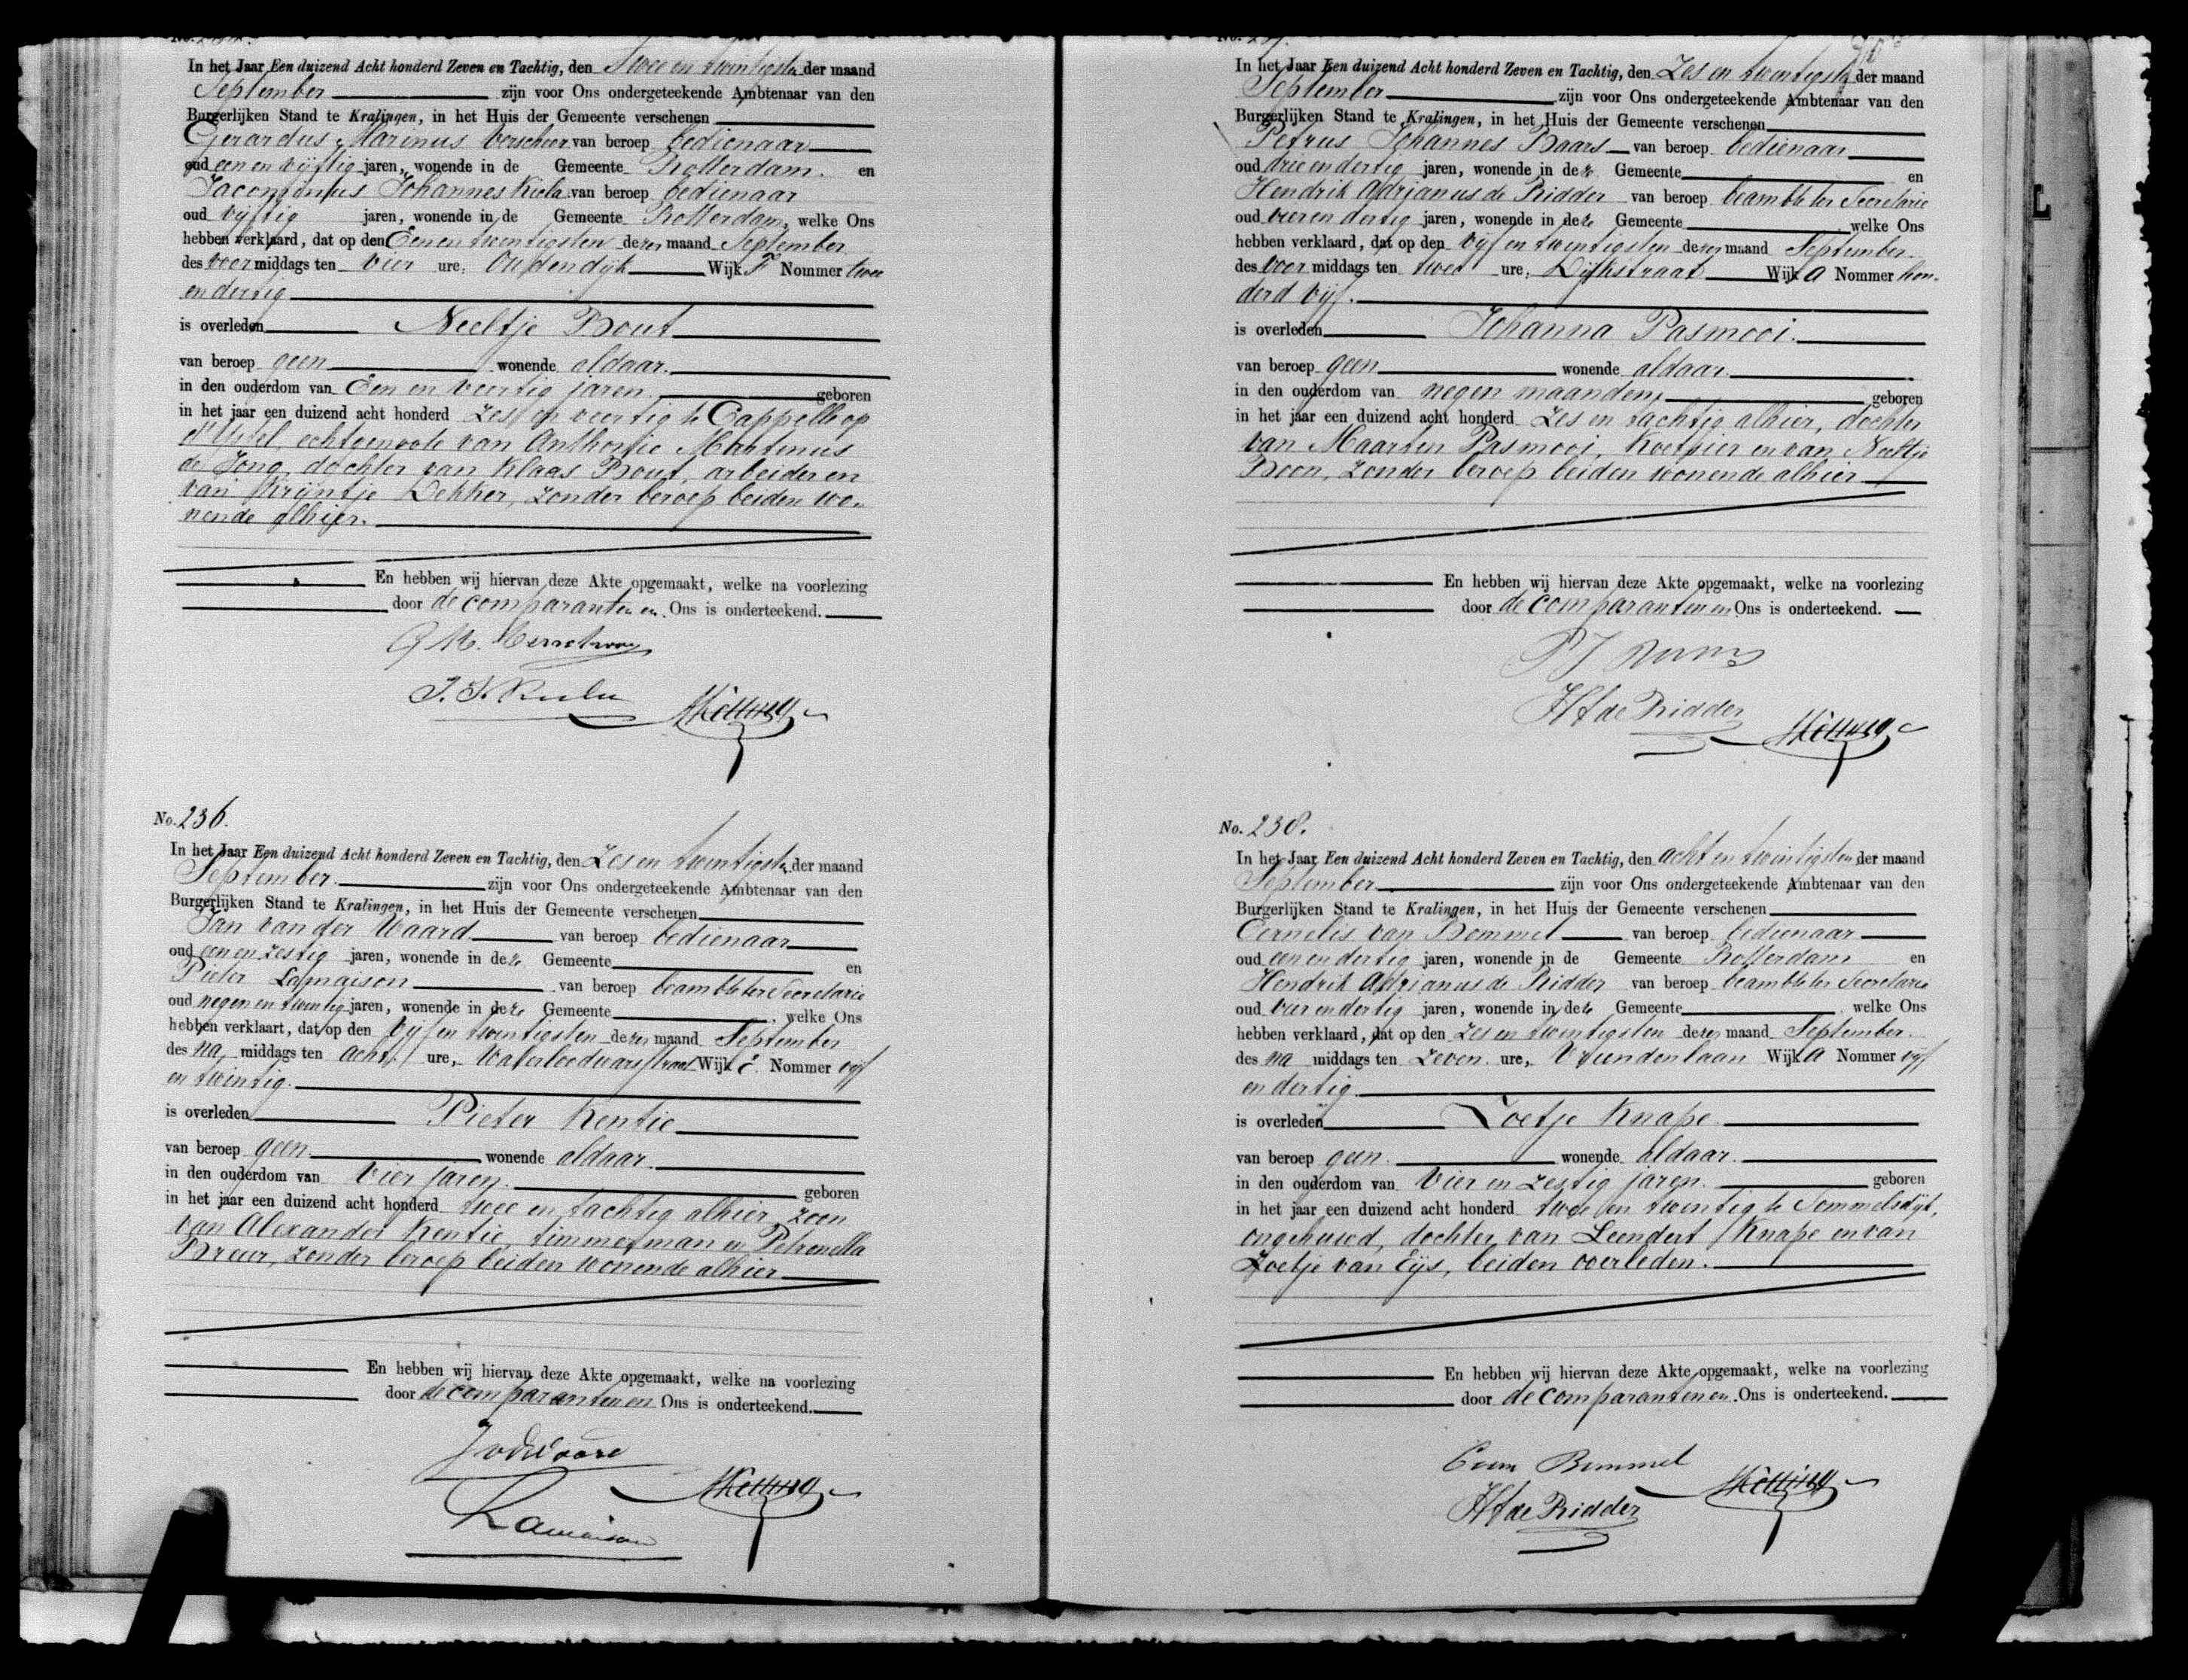 In het Jaar Een duizend Acht honderd Zeven en Tachtig, den Twee en twintigste der maand
September zijn voor Ons ondergeteekende Ambtenaar van den
Burgerlijken Stand te Kralingen, in het Huis der Gemeente verschenen
Gerardus Marinus Verschoor van beroep bedienaar
oud een en vijftig jaren, wonende in de Gemeente Rotterdam. en
Johannes van beroep bedienaar
oud vijftig jaren, wonende in de Gemeente Rotterdam, welke Ons
hebben verklaard, dat op den Een en twintigsten dezer maand September
des voor middags ten vier ure, Oudendijk Wijk F Nommer twee
en dertig
is overleden Neeltje Bout
van beroep geen wonende aldaar.
in den ouderdom van Een en veertig jaren, geboren
in het jaar een duizend acht honderd zes en veertig te Cappelle op
d'IJssel, echtgenoote van Anthonie Martinus
de Jong, dochter van Klaas Bout, arbeider en
van Krijntje Dekker, zonder beroep beiden wo-
nende alhier.
En hebben wij hiervan deze Akte opgemaakt, welke na voorlezing
door de comparanten en Ons is onderteekend.
No. 236.
In het Jaar Een duizend Acht honderd Zeven en Tachtig, den Zes en twintigste der maand
September. zijn voor Ons ondergeteekende Ambtenaar van den
Burgerlijken Stand te Kralingen, in het Huis der Gemeente verschenen
Jan van der Waard van beroep bedienaar
oud een en zestig jaren, wonende in deze Gemeente en
Pieter Lamaison van beroep beambte ter Secretarie
oud negen en twintig jaren, wonende in deze Gemeente, welke Ons
hebben verklaart, dat op den vijf en twintigsten dezer maand September
des na middags ten acht ure, Waterloodwarsstraat Wijk C Nommer vijf
en twintig.
is overleden Pieter Kentie
van beroep geen. wonende aldaar.
in den ouderdom van Vier jaren. geboren
in het jaar een duizend acht honderd twee en tachtig alhier, zoon
van Alexander Kentie, timmerman en Petronella
Breur, zonder beroep beiden wonende alhier
En hebben wij hiervan deze Akte opgemaakt, welke na voorlezing
door de comparanten en Ons is onderteekend.
JvdWaard
Lamaison
In het Jaar Een duizend Acht honderd Zeven en Tachtig, den Zes en twintigste der maand
September zijn voor Ons ondergeteekende Ambtenaar van den
Burgerlijken Stand te Kralingen, in het Huis der Gemeente verschenen
Petrus Johannes Baars van beroep bedienaar
oud drie en dertig jaren, wonende in deze Gemeente en
Hendrik Adrianus de Ridder van beroep beambte ter Secretarie
oud vier en dertig jaren, wonende in deze Gemeente welke Ons
hebben verklaard, dat op den vijf en twintigsten dezer maand September.
des voor middags ten twee ure, Dijkstraat Wijk A Nommer hon-
derd vijf.
is overleden Johanna Pasmooi.
van beroep geen wonende aldaar.
in den ouderdom van negen maanden, geboren
in het jaar een duizend acht honderd zes en tachtig alhier, dochter
van Maarten Pasmooi, koetsier en van Neeltje
Boon, zonder beroep beiden wonende alhier
En hebben wij hiervan deze Akte opgemaakt, welke na voorlezing
door de comparanten en Ons is onderteekend.
PJ Baars
HA de Ridder
No. 238.
In het Jaar Een duizend Acht honderd Zeven en Tachtig, den acht en twintigsten der maand
September zijn voor Ons ondergeteekende Ambtenaar van den
Burgerlijken Stand te Kralingen, in het Huis der Gemeente verschenen
Cornelis van Bommel van beroep bedienaar
oud een en dertig jaren, wonende in de Gemeente Rotterdam en
Hendrik Adrianus de Ridder van beroep beambte ter Secretarie
oud vier en dertig jaren, wonende in deze Gemeente, welke Ons
hebben verklaard, dat op den zes en twintigsten dezer maand September.
des na middags ten zeven ure, Vriendenlaan Wijk A Nommer vijf
en dertig.
is overleden Zoetje Knape.
van beroep geen. wonende aldaar.
in den ouderdom van Vier en zestig jaren. geboren
in het jaar een duizend acht honderd twee en twintig te Sommelsdijk,
ongehuwd, dochter van Leendert Knape en van
Zoetje van Eijs, beiden overleden.
En hebben wij hiervan deze Akte opgemaakt, welke na voorlezing
door de comparanten en Ons is onderteekend.
C van Bommel
HA de Ridder